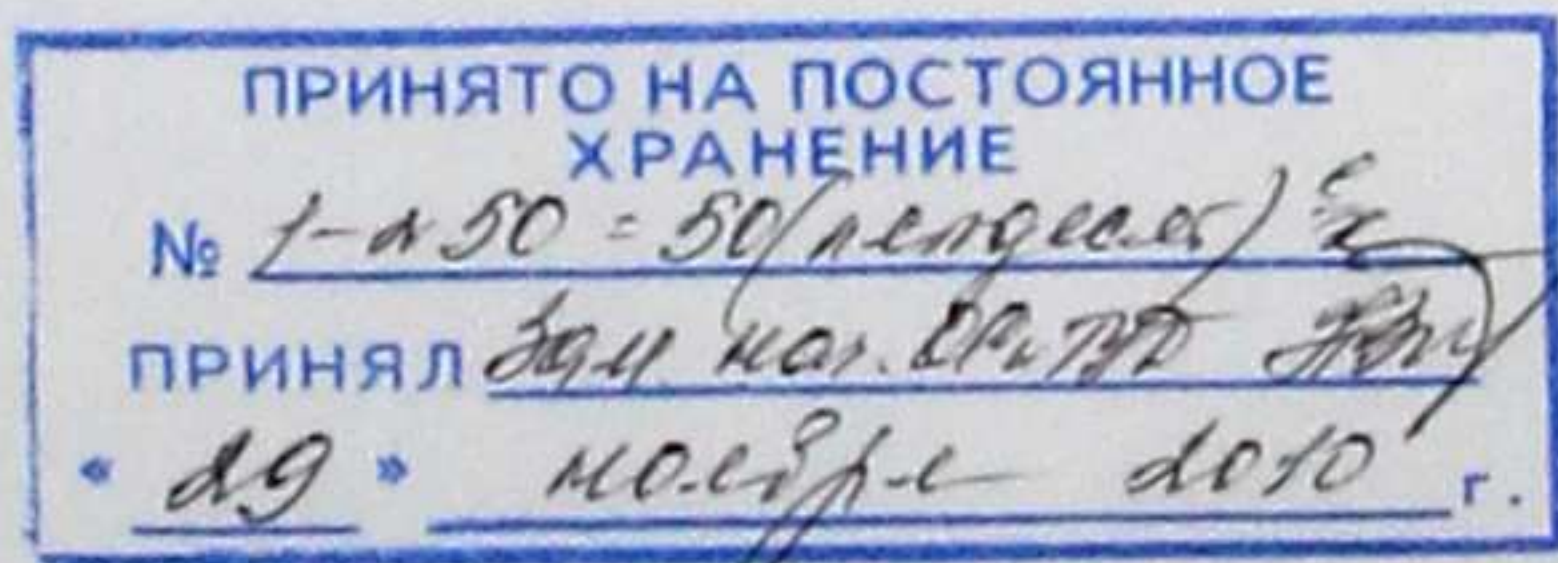 ПРИНЯТО НА ПОСТОЯННОЕ
ХРАНЕНИЕ
№ 1-а 50 = 50 (пятьдесят)
ПРИНЯЛ Зам. нач.
« 29 » ноября 2010 г.